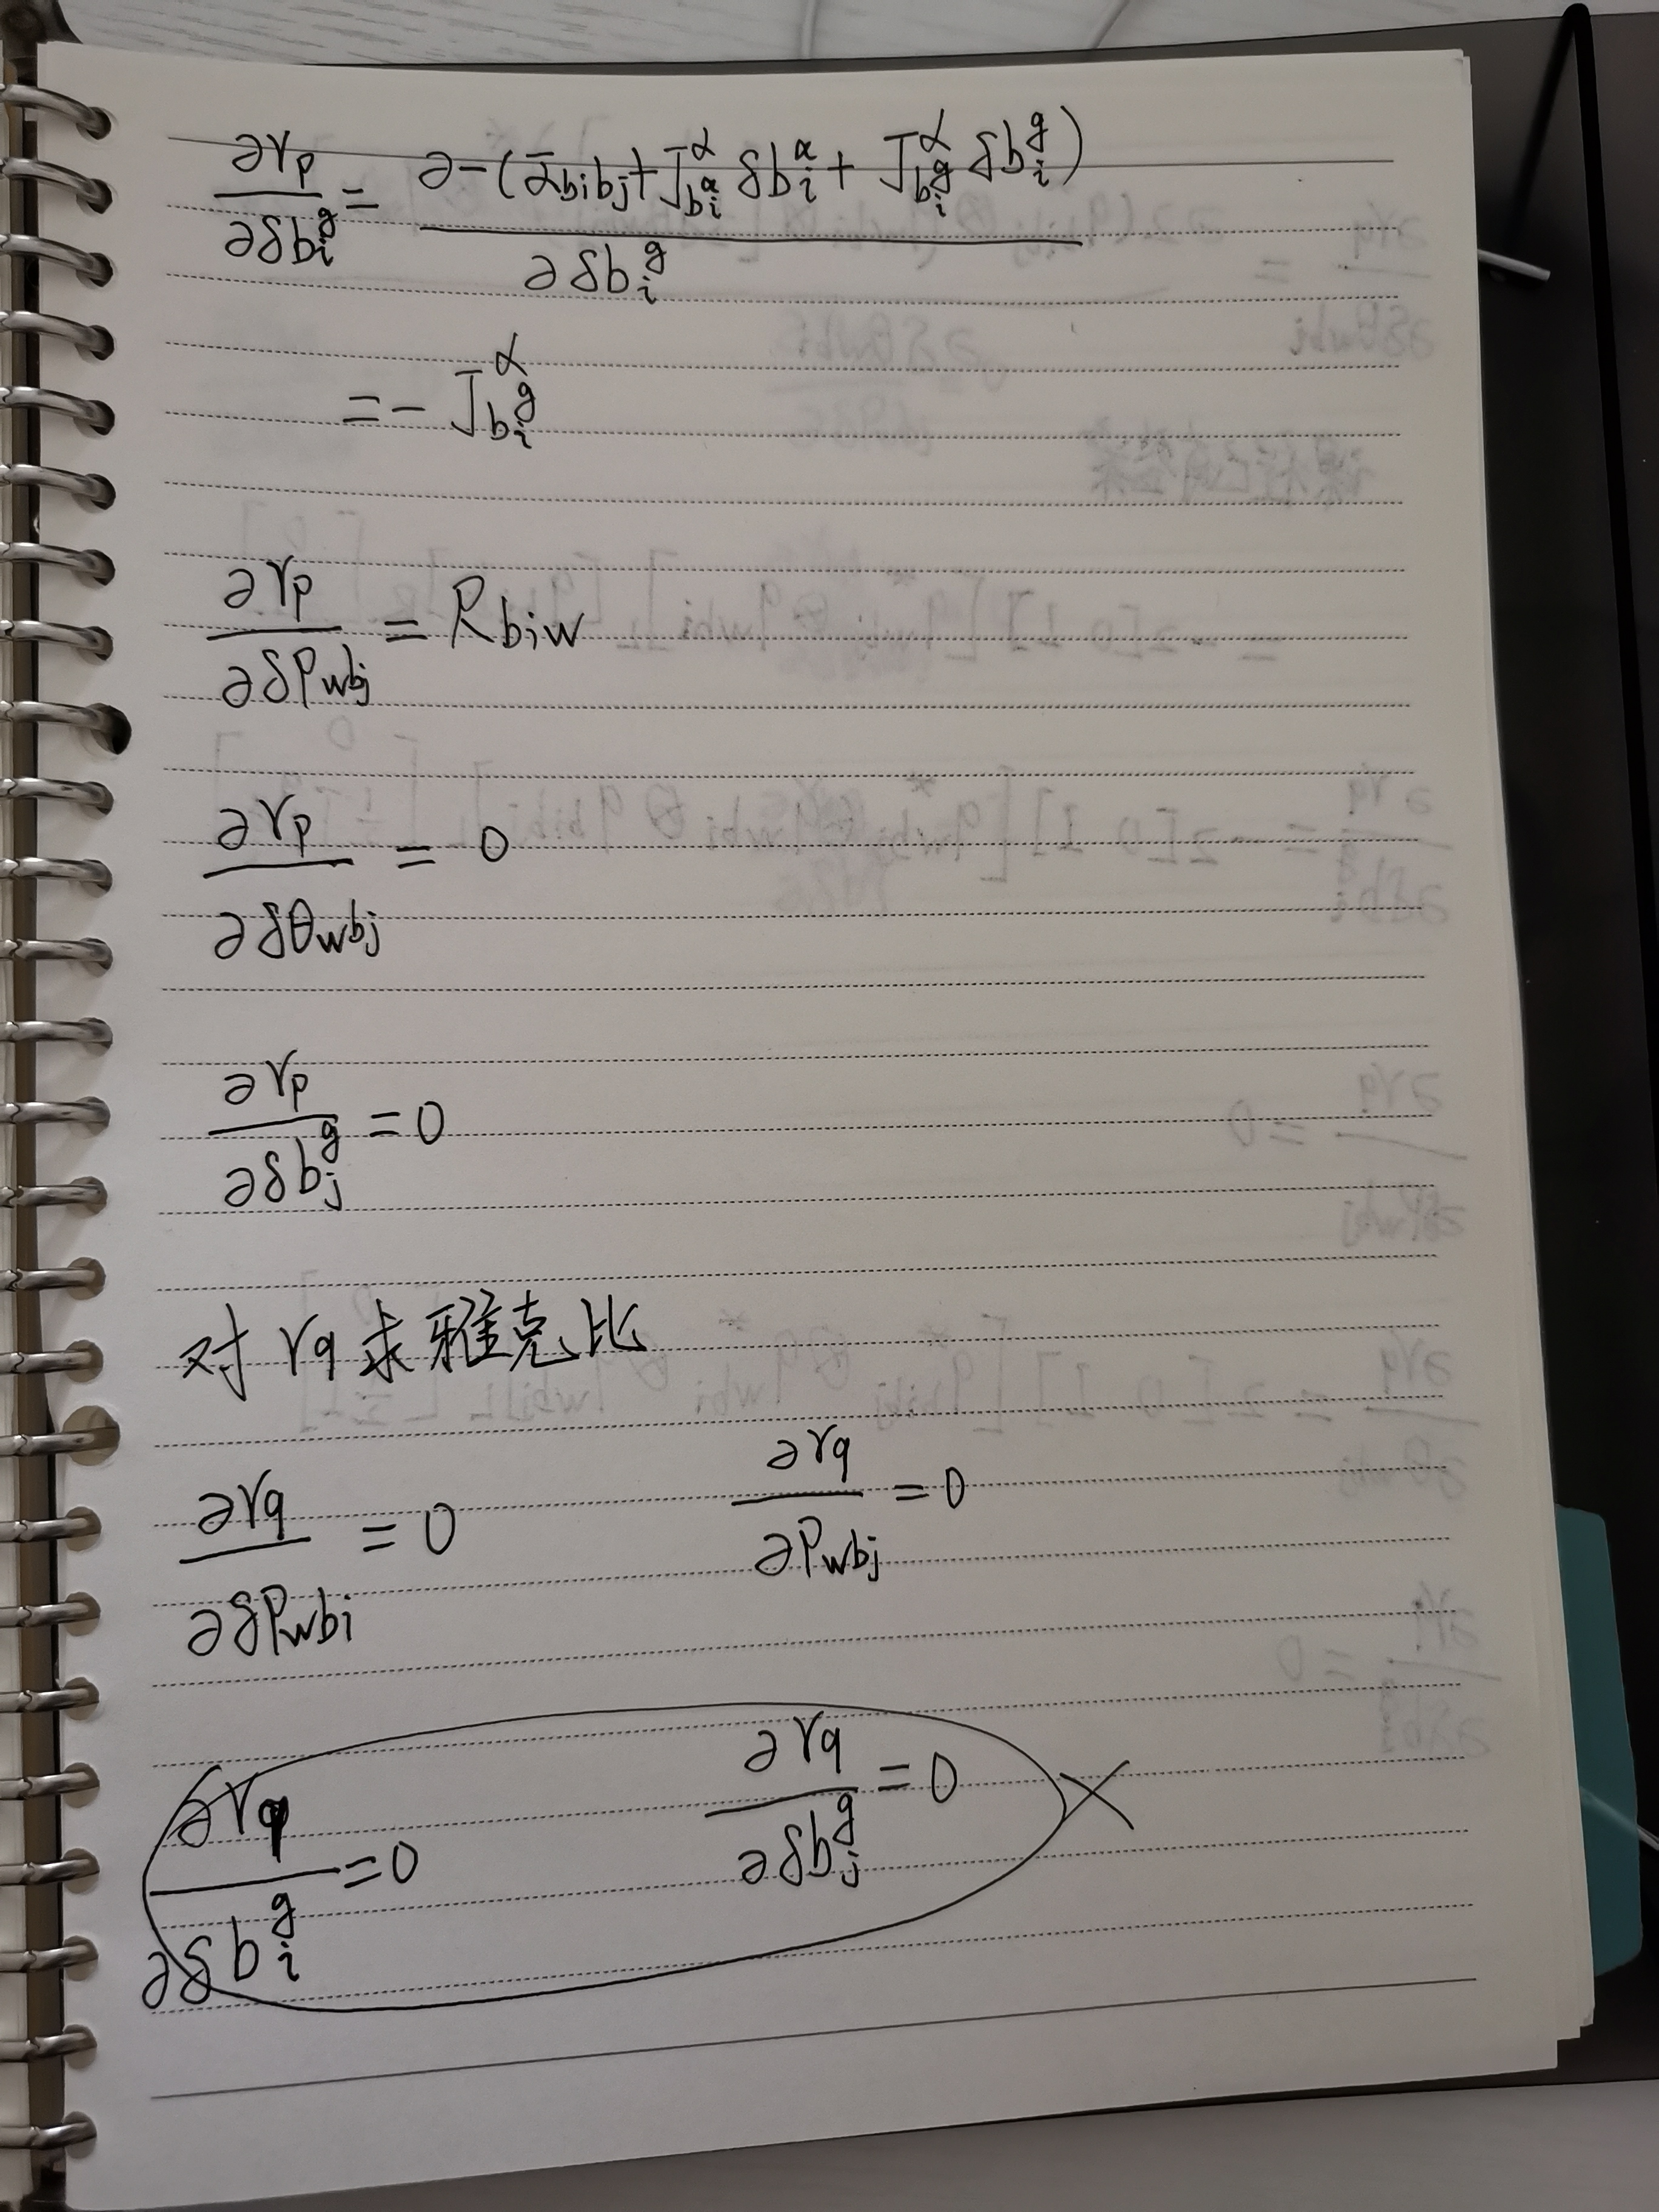 ∂rp/∂δb_i^g = ∂-(ᾱbibj + J^α_{b_i^a} δb_i^a + J^α_{b_i^g} δb_i^g)/∂δb_i^g
= - J^α_{b_i^g}
∂rp/∂δPwbj = Rbiw
∂rp/∂δθwbj = 0
∂rp/∂δb_j^g = 0
对 rq 求雅克比
∂rq/∂δPwbi = 0 ∂rq/∂Pwbj = 0
∂rq/∂δb_i^g = 0 ∂rq/∂δb_j^g = 0 ×